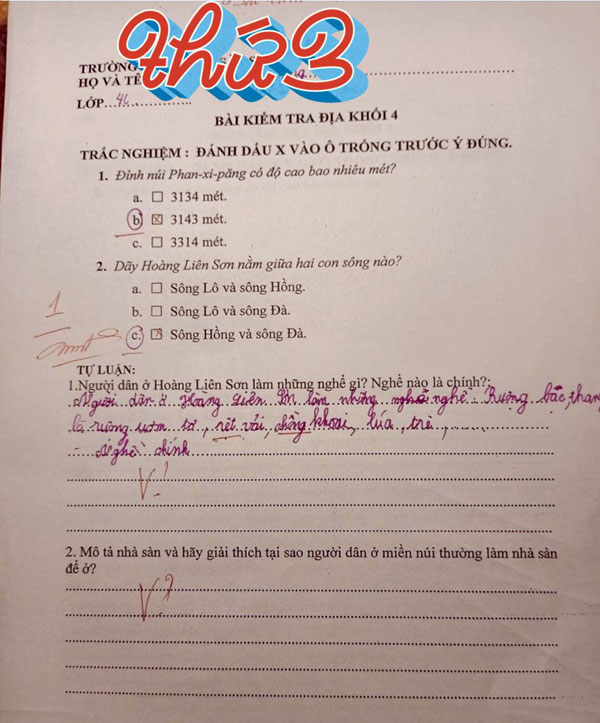 thứ 3
TRƯỜNG
HỌ VÀ TÊ
LỚP...4C...............
BÀI KIỂM TRA ĐỊA KHỐI 4
TRẮC NGHIỆM : ĐÁNH DẤU X VÀO Ô TRỐNG TRƯỚC Ý ĐÚNG.
1. Đỉnh núi Phan-xi-păng có độ cao bao nhiêu mét?
a. ☐ 3134 mét.
b. ☒ 3143 mét.
c. ☐ 3314 mét.
2. Dãy Hoàng Liên Sơn nằm giữa hai con sông nào?
a. ☐ Sông Lô và sông Hồng.
b. ☐ Sông Lô và sông Đà.
1
c. ☒ Sông Hồng và sông Đà.
TỰ LUẬN:
1.Người dân ở Hoàng Liên Sơn làm những nghề gì? Nghề nào là chính?:
Người dân ở Hoàng Liên Sơn làm những nghề Ruộng bậc thang
là ruộng ươm tơ, rệt vải, chồng khoai, lúa, trè,
- Nghề chính
V!
2. Mô tả nhà sàn và hãy giải thích tại sao người dân ở miền núi thường làm nhà sàn
để ở?
V?